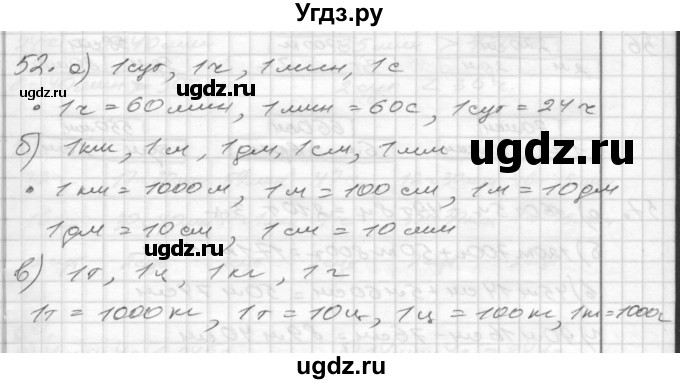 Угдз.ру
52. а) 1сут, 1ч, 1мин, 1с
• 1ч = 60мин, 1мин = 60с, 1сут = 24ч
б) 1км, 1м, 1дм, 1см, 1мм
• 1км = 1000м, 1м = 100см, 1м = 10дм
1дм = 10см, 1см = 10мм
в) 1т, 1ц, 1кг, 1г
1т = 1000кг, 1т = 10ц, 1ц = 100кг, 1кг=1000г
ugdz.ru
ugdz.ru
ugdz.ru
ugdz.ru
ugdz.ru
ugdz.ru